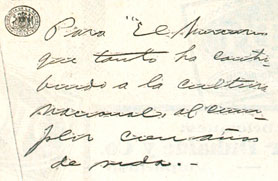 Para "El Mercurio
que tanto ha contri
buido a la cultura
nacional, al cum-
plir cien años
de vida.-